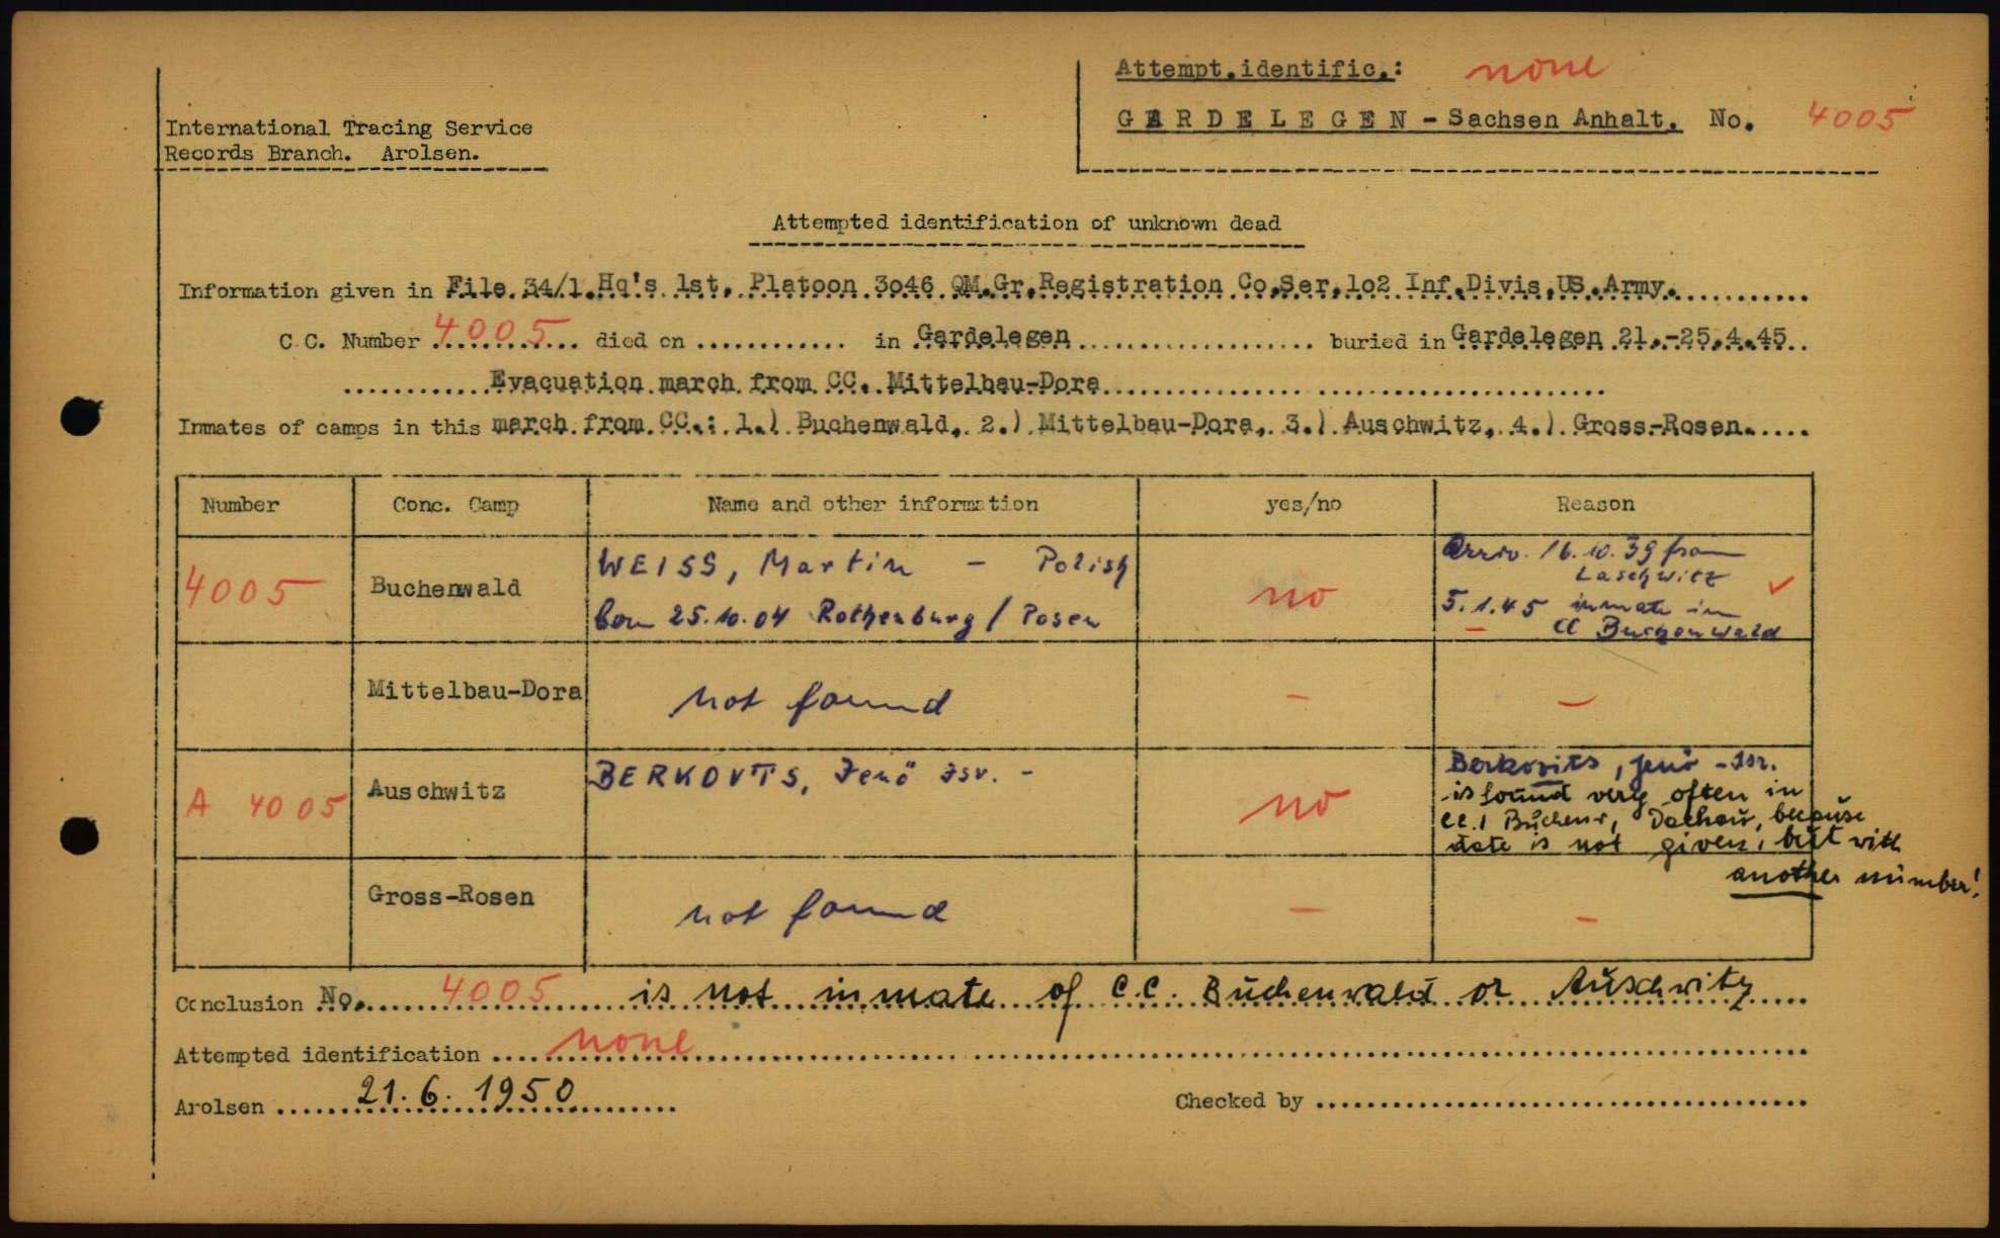 Attempt.identific.: none
GARDELEGEN - Sachsen Anhalt. No. 4005
International Tracing Service
Records Branch. Arolsen.
Attempted identification of unknown dead
Information given in File 34/1.Hq's 1st. Platoon 3o46 QM.Gr.Registration Co.Ser.1o2 Inf.Divis.US.Army.
C.C. Number 4005 died on ............ in Gardelegen buried in Gardelegen 21.-25.4.45.
Evacuation march from CC. Mittelbau-Dora
Inmates of camps in this march from CC.: 1.) Buchenwald, 2.) Mittelbau-Dora, 3.) Auschwitz, 4.) Gross-Rosen.
Number Conc. Camp Name and other information yes/no Reason
4005 Buchenwald WEISS, Martin - Polish no Arriv. 16.10.39 from
Laschwitz
born 25.10.04 Rothenburg / Posen 5.1.45 inmate in
CC Buchenwald
Mittelbau-Dora not found - -
A 4005 Auschwitz BERKOVTS, Jenö Isr. - no Berkovits, Jenö - Isr.
is found very often in
CC.! Buchenw, Dachau, because
date is not given, but with
another number!
Gross-Rosen not found - -
Conclusion No. 4005 is not inmate of C.C. Buchenwald or Auschwitz
Attempted identification none
Arolsen 21.6.1950 Checked by